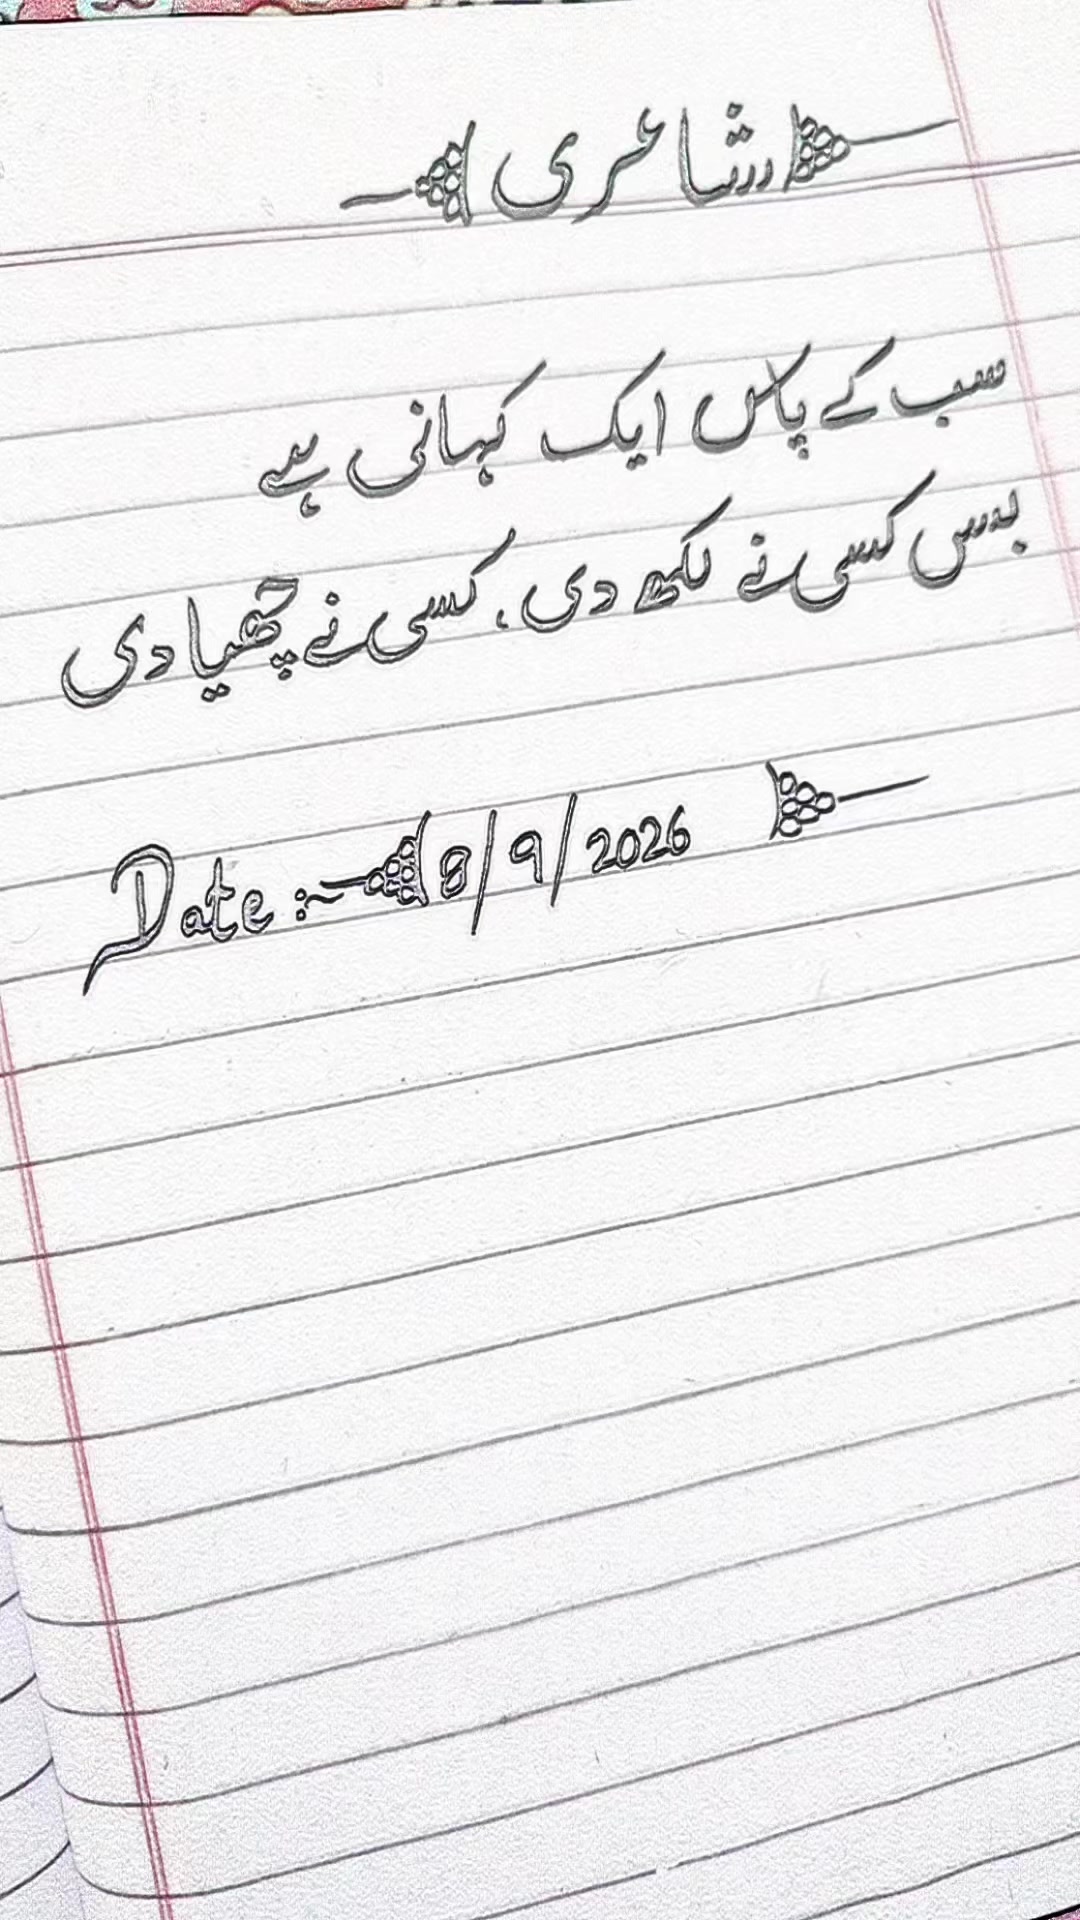 شاعری
سب کے پاس ایک کہانی ہے
بس کسی نے لکھ دی، کسی نے چھپا دی
Date :- 8/9/2026